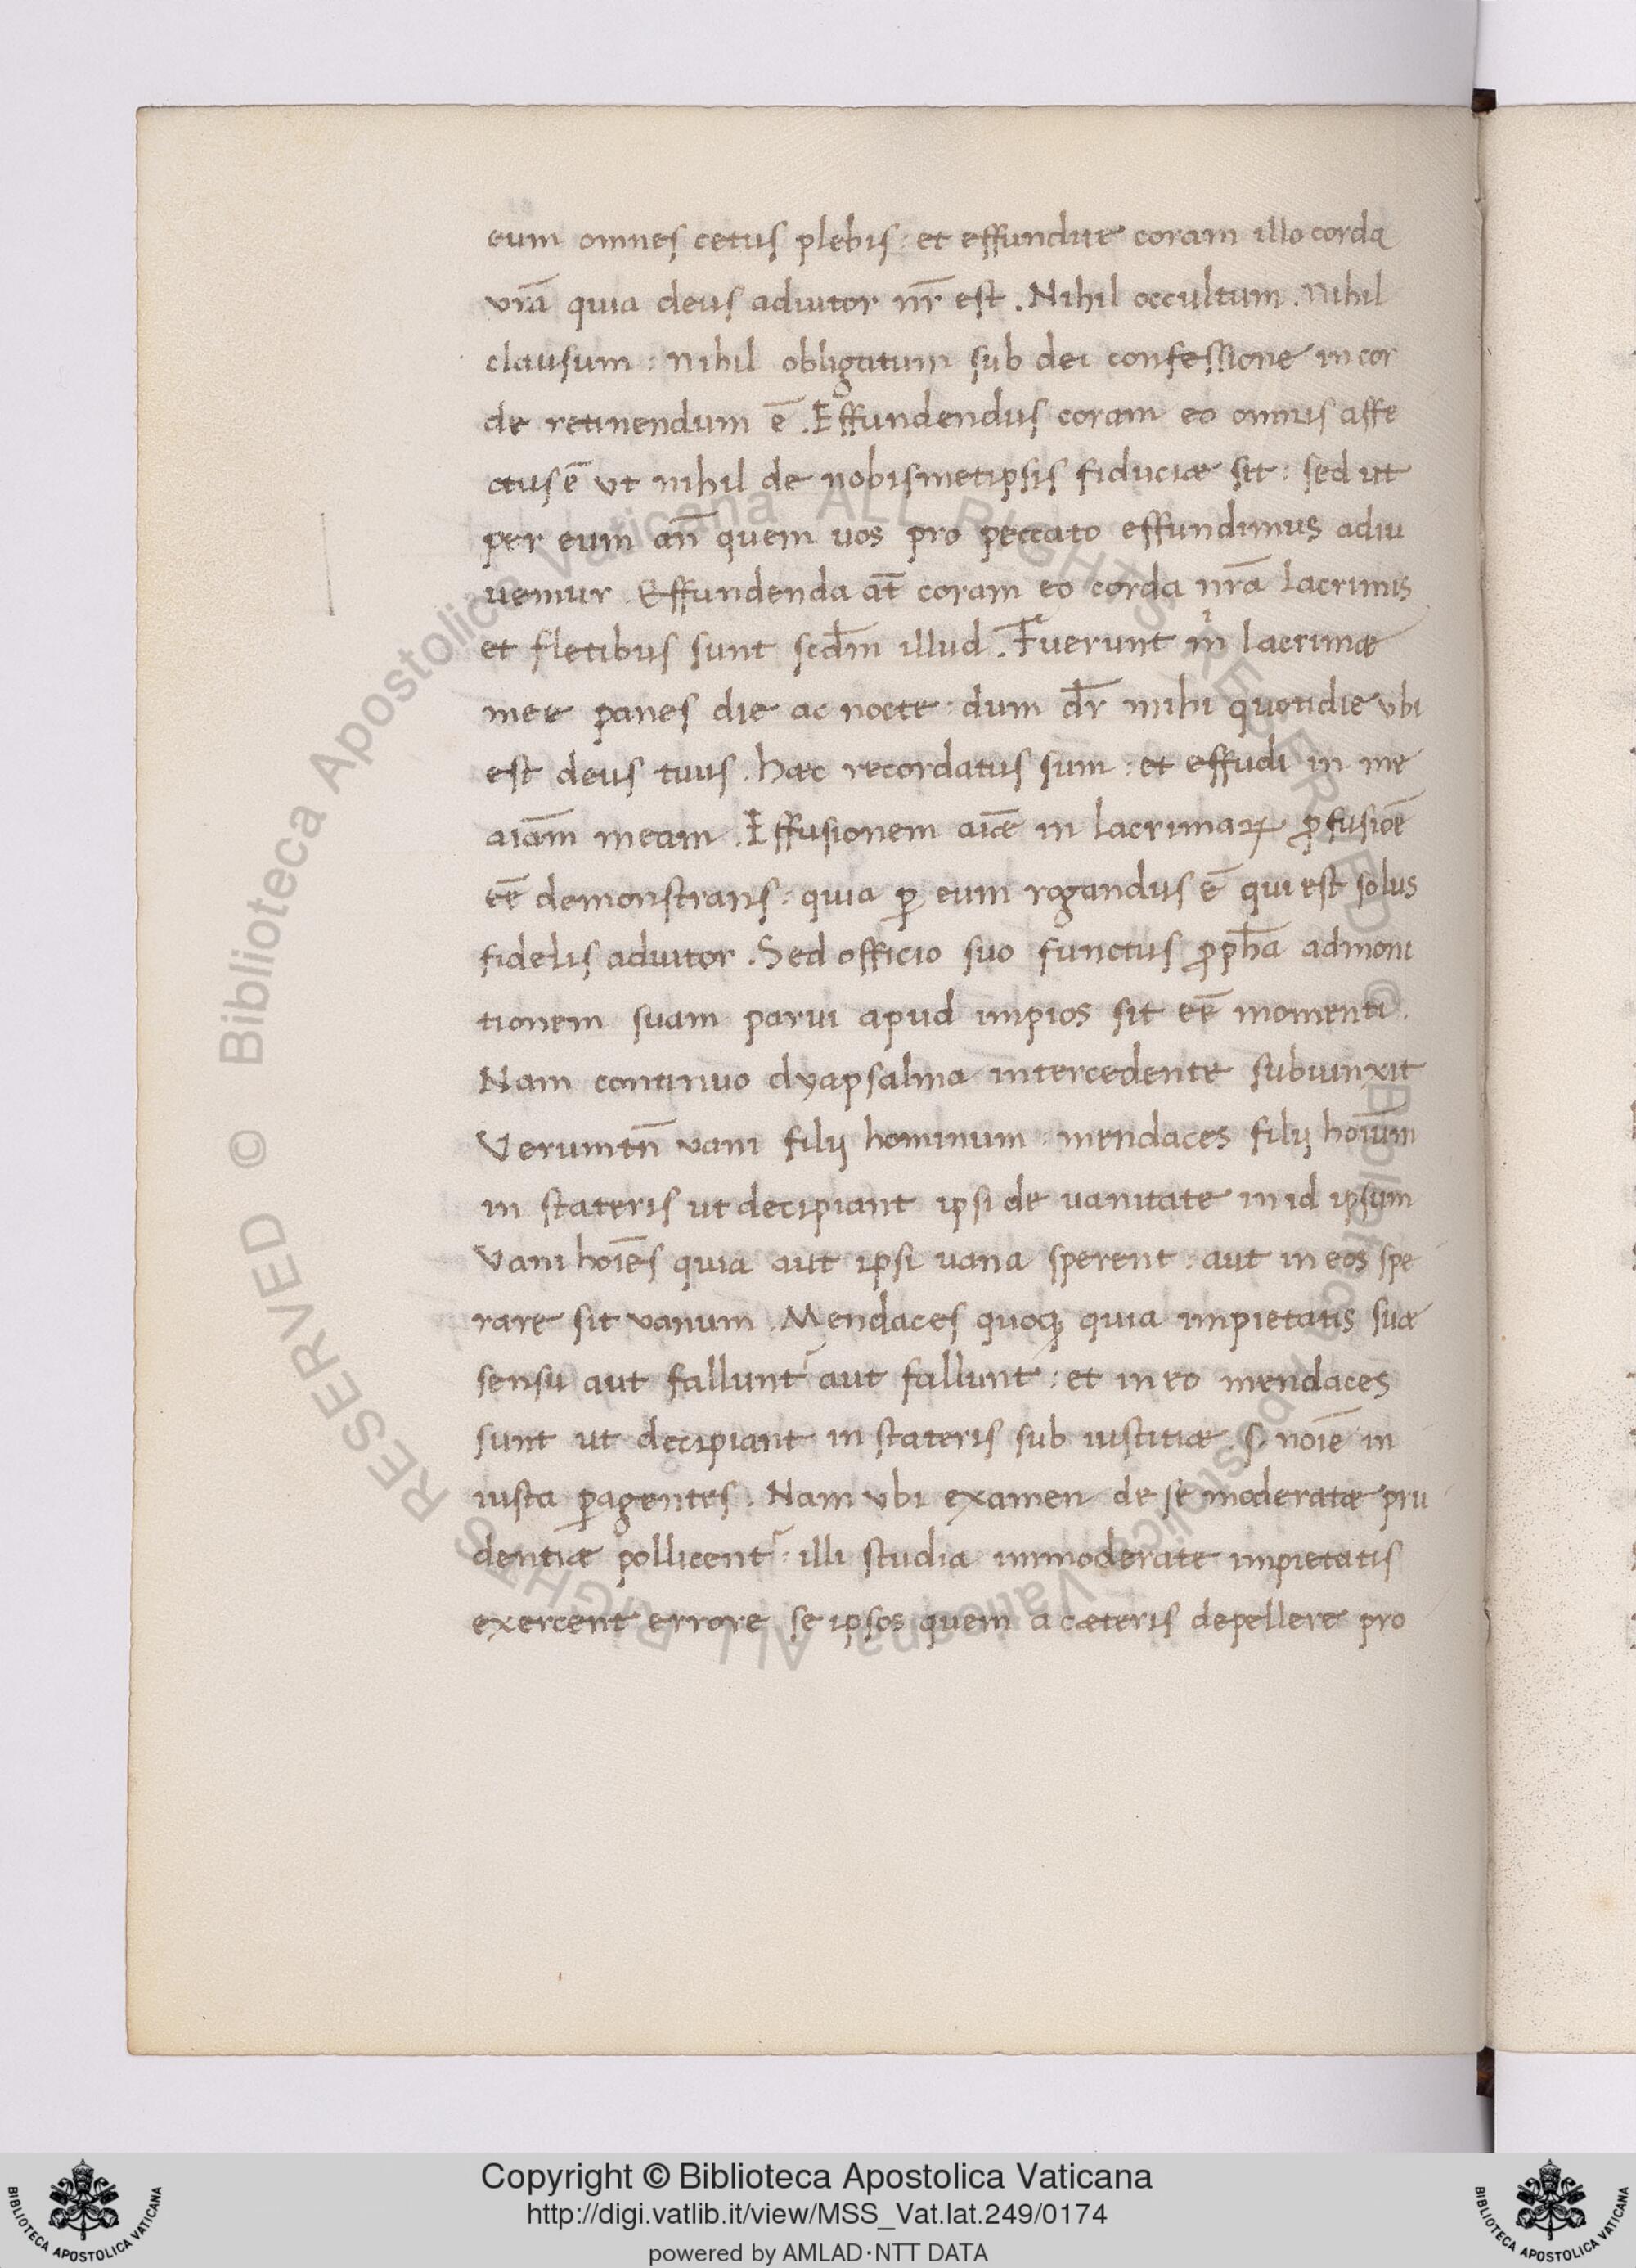 eum omnes cetus plebis : et effundite coram illo corda
vr̄a quia deus adiutor nr̄ est . Nihil occultum . nihil
clausum : nihil obligatum sub dei confessione in cor
de retinendum ē . Effundendus coram eo omnis affe
ctus ē vt nihil de nobismetipsis fiduciæ sit : sed ut
per eum an̄ quem uos pro peccato effundimus adiu
uemur . Effundenda at̄ coram eo corda nr̄a lacrimis
et fletibus sunt scđm illud . Fuerunt m̊ lacrimæ
mee panes die ac nocte : dum dr̄ mihi quotidie vbi
est deus tuus . hæc recordatus sum : et effudi in me
aīam meam . Effusionem aīæ in lacrimaꝝ ꝓfusiōē
eē demonstrans : quia ꝑ eum rogandus ē qui est solus
fidelis adiutor . Sed officio suo functus ꝓph̄a admoni
tionem suam parui apud impios sit eē momenti .
Nam continuo dyapsalma intercedente subiunxit
Verumtn̄ vani filij hominum : mendaces filij hoīum
in stateris ut decipiant ipsi de uanitate in id ipsum
Vani hoīēs quia aut ipsi uana sperent : aut in eos spe
rare sit vanum . Mendaces quoqꝫ quia impietatis suæ
sensu aut fallunt᷑ aut fallunt : et in eo mendaces
sunt ut decipiant in stateris sub iustitiæ .s. noīē in
iusta ꝑagentes . Nam vbi examen de se moderatæ pru
dentiæ pollicent᷑ : illi studia immoderate impietatis
exercent errore se ipsos quem a cæteris depellere pro
Copyright © Biblioteca Apostolica Vaticana
http://digi.vatlib.it/view/MSS_Vat.lat.249/0174
powered by AMLAD·NTT DATA
BIBLIOTECA APOSTOLICA VATICANA
BIBLIOTECA APOSTOLICA VATICANA
© Biblioteca Apostolica Vaticana ALL RIGHTS RESERVED © Biblioteca Apostolica Vaticana ALL RIGHTS RESERVED